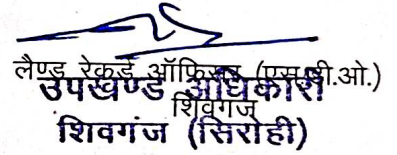 लैण्ड रेकर्ड ऑफिसर (एस.डी.ओ.)
उपखण्ड अधिकारी
शिवगंज
शिवगंज (सिरोही)